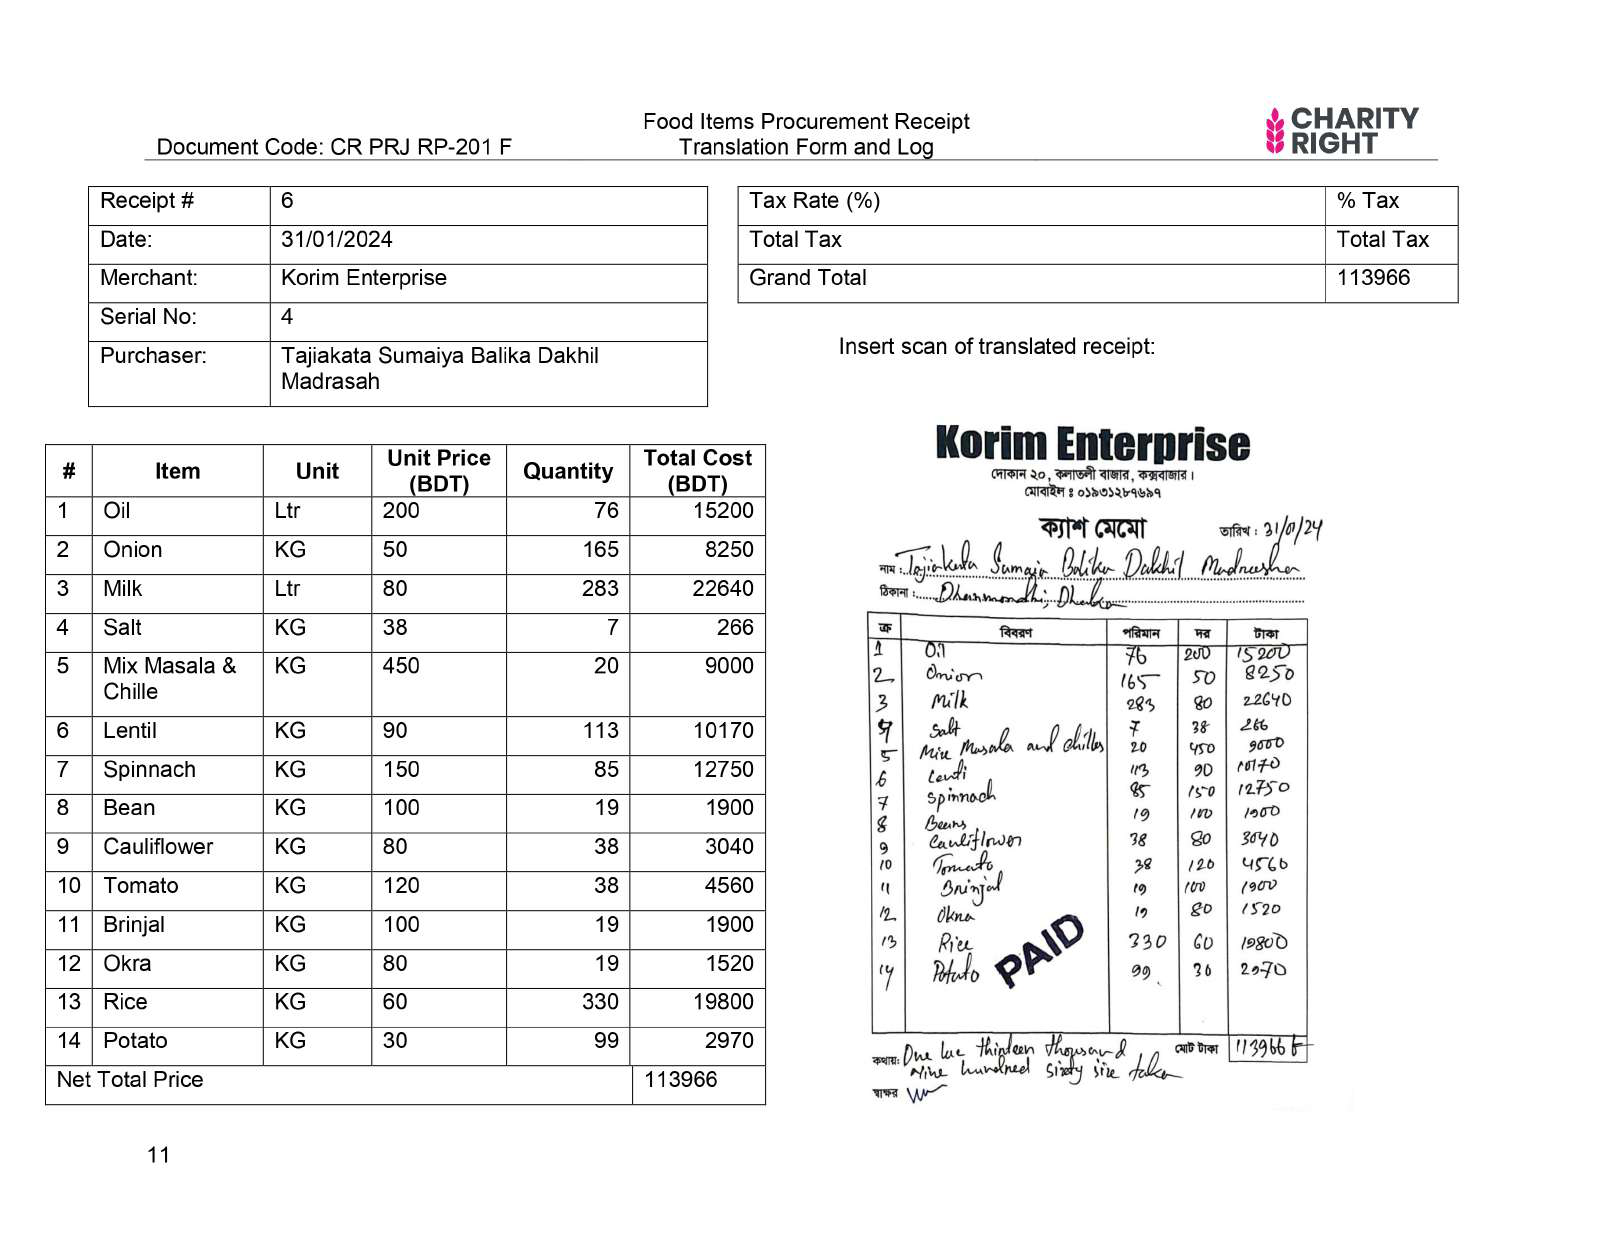 Document Code: CR PRJ RP-201 F
Food Items Procurement Receipt
Translation Form and Log
CHARITY
RIGHT
Receipt # 6
Date: 31/01/2024
Merchant: Korim Enterprise
Serial No: 4
Purchaser: Tajiakata Sumaiya Balika Dakhil
Madrasah
Tax Rate (%) % Tax
Total Tax Total Tax
Grand Total 113966
Insert scan of translated receipt:
# Item Unit Unit Price (BDT) Quantity Total Cost (BDT)
1 Oil Ltr 200 76 15200
2 Onion KG 50 165 8250
3 Milk Ltr 80 283 22640
4 Salt KG 38 7 266
5 Mix Masala & Chille KG 450 20 9000
6 Lentil KG 90 113 10170
7 Spinnach KG 150 85 12750
8 Bean KG 100 19 1900
9 Cauliflower KG 80 38 3040
10 Tomato KG 120 38 4560
11 Brinjal KG 100 19 1900
12 Okra KG 80 19 1520
13 Rice KG 60 330 19800
14 Potato KG 30 99 2970
Net Total Price 113966
Korim Enterprise
দোকান ২০, কলাতলী বাজার, কক্সবাজার।
মোবাইল : ০১৯৩১২৮৭৬৯৭
ক্যাশ মেমো
তারিখ : 31/01/24
নাম : Tajiakata Sumaia Balika Dakhil Madrasha
ঠিকানা : Dhanmondhi, Dhaka
ক্র বিবরণ পরিমান দর টাকা
1 Oil 76 200 15200
2 Onion 165 50 8250
3 Milk 283 80 22640
4 Salt 7 38 266
5 Mix Masala and chilles 20 450 9000
6 Lentil 113 90 10170
7 Spinnach 85 150 12750
8 Beans 19 100 1900
9 Cauliflower 38 80 3040
10 Tomato 38 120 4560
11 Brinjal 19 100 1900
12 Okra 19 80 1520
13 Rice 330 60 19800
14 Potato 99 30 2970
PAID
কথায়: One lac thinteen thousand মোট টাকা 113966 ৳
Nine hundred sixty six taka
স্বাক্ষর
11